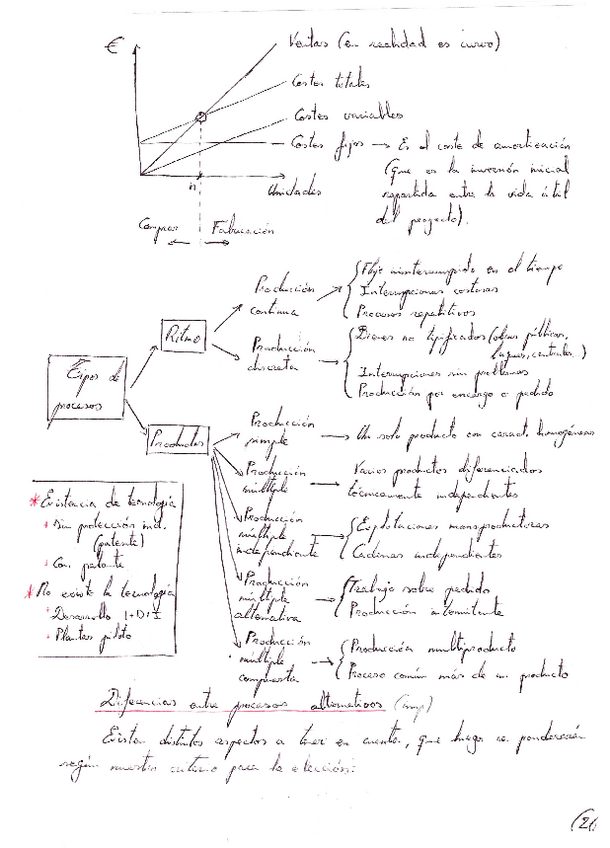 €
Ventas (en realidad es curvo)
Costes totales
Costes variables
Costes fijos → Es el coste de amortización
(que es la inversión inicial
repartida entre la vida útil
del proyecto).
n
Unidades
Comprar
Fabricación
Tipos de
procesos
Ritmo
Producción
continua
Flujo ininterrumpido en el tiempo
Interrupciones costosas
Procesos repetitivos
Producción
discreta
Bienes no tipificados (obras públicas,
buques, centrales...)
Interrupciones sin problemas
Producción por encargo o pedido
Productos
Producción
simple
Un solo producto con caract. homogéneas
Producción
múltiple
Varios productos diferenciados
técnicamente independientes
Producción
múltiple
independiente
Explotaciones monoproductoras
Cadenas independientes
Producción
múltiple
alternativa
Trabajo sobre pedido
Producción intermitente
Producción
múltiple
compuesta
Producción multiproducto
Proceso común más de un producto
* Existencia de tecnología
Sin protección ind.
(patente)
Con patente
* No existe la tecnología
Desarrollo I+D+I
Plantas piloto
Diferencias entre procesos alternativos (imp)
Existen distintos aspectos a tener en cuenta, que luego se ponderarán
según nuestro criterio para la elección:
(26